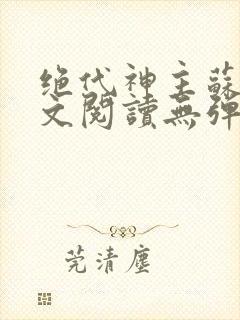 绝代神主蘇
文閱讀無彈
莞清塵